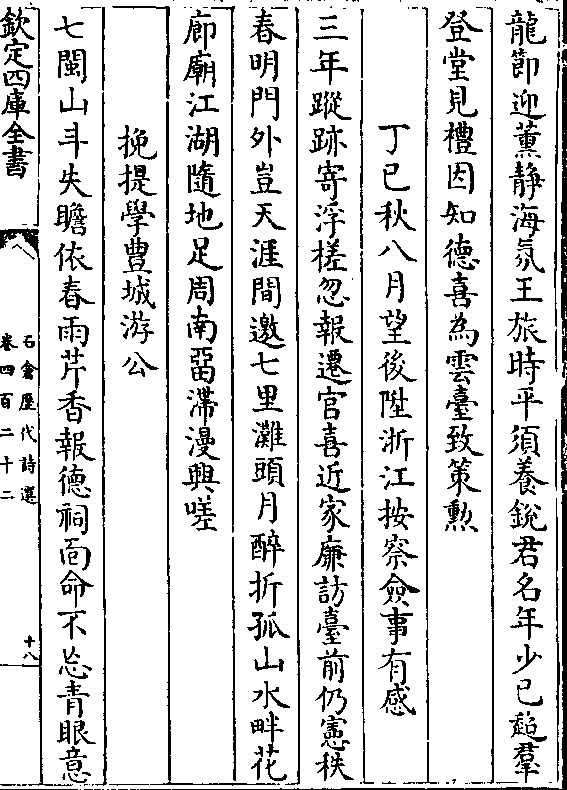 龍節迎薰靜海氛王旅時平須養銳君名年少已超羣
登堂見禮因知德喜為雲臺致策勲
丁巳秋八月望後陞浙江按察僉事有感
三年蹤跡寄浮槎忽報遷官喜近家廉訪臺前仍憲秩
春明門外豈天涯間邀七里灘頭月醉折孤山水畔花
廊廟江湖隨地足周南畱滯漫興嗟
挽提學豊城游公
七閩山斗失瞻依春雨芹香報德祠靣命不忘青眼意
欽定四庫全書
石倉歷代詩選
卷四百二十二
十八